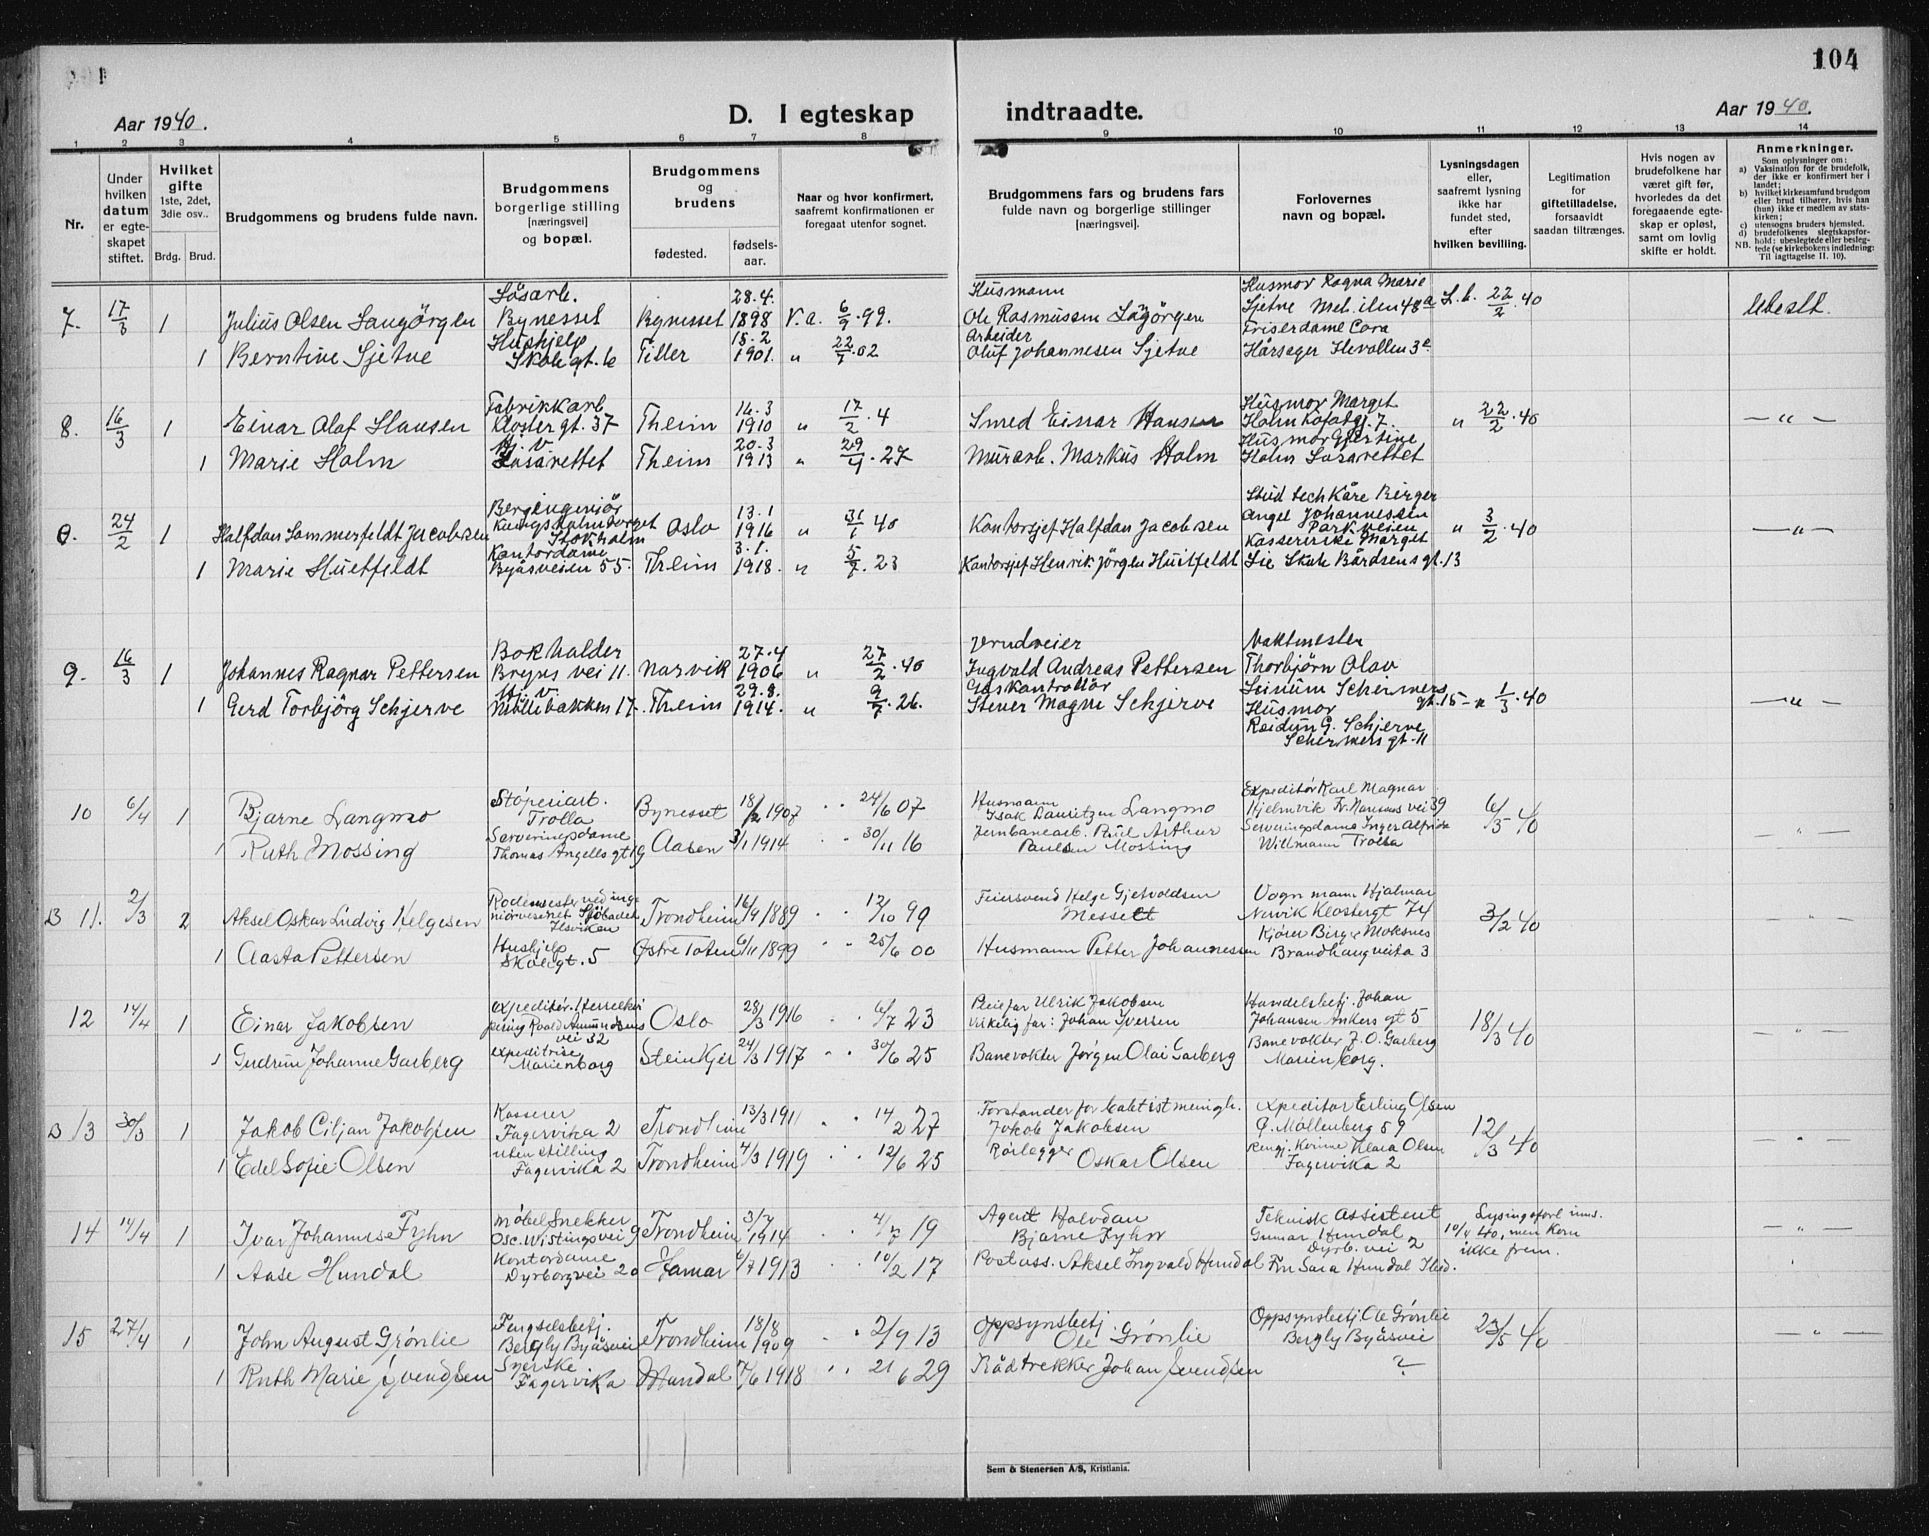 104
Aar 1940.
D. I egteskap indtraadte.
Aar 1940.
1 2 3 4 5 6 7 8 9 10 11 12 13 14
Nr.
Under hvilken datum er egteskapet stiftet.
Hvilket gifte 1ste, 2det, 3die osv..
Brdg. Brud.
Brudgommens og brudens fulde navn.
Brudgommens borgerlige stilling [næringsvei] og bopæl.
Brudgommens og brudens
fødested. fødselsaar.
Naar og hvor konfirmert, saafremt konfirmationen er foregaat utenfor sognet.
Brudgommens fars og brudens fars fulde navn og borgerlige stillinger [næringsvei].
Forlovernes navn og bopæl.
Lysningsdagen eller, saafremt lysning ikke har fundet sted, efter hvilken bevilling.
Legitimation for giftetilladelse, forsaavidt saadan tiltrænges.
Hvis nogen av brudefolkene har været gift før, hvorledes da det foregaaende egteskap er opløst, samt om lovlig skifte er holdt.
Anmerkninger.
Som oplysninger om:
a) Vaksination for de brudefolk, der ikke er konfirmert her i landet;
b) hvilket kirkesamfund brudgom eller brud tilhører, hvis han (hun) ikke er medlem av statskirken;
c) utensogns bruders hjemsted.
d) brudefolkenes slegtskapsforhold: ubeslegtede eller beslegtede (se kirkebokens indledning:
NB. Til iagttagelse II. 10).
7. 17/3 1 Julius Olsen Saugörgen Løsarb. Bynesset Bynesset 28.4. 1898 V.a. 6/9.99. Husmann Ole Rasmussen Husmor Ragna Marie Sjetne 22/2.40 Ubeslt.
1 Berntine Sjetne Hushjelp Skole gt. 6 Tiller 15.2 1901. " 22/7.02 Arbeider Oluf Johannesen Sjetne Friserdame Cora
8. 16/3 1 Einar Olaf Hansen Fabrikkarb Kloster gt. 37 Theim 14.3 1910 " 17/2.4 Smed Einar Hansen Husmor Marget Holm " 22/2.40 — " —
1 Marie Holm Hj. v. Lasarettet Theim 20.3 1913 " 29/4.27 Murarb. Markus Holm Husmor Holm Lasarettet
24/2 1 Halfdan Sommerfeldt Jacobsen Bergingeniör Stokholm Oslo 13.1 1916 " 31/1 40 Kontorsjef Halfdan Jacobsen Stud tech Kåre Birger Angel Johannessen Parkveien " 3/2.40 — " —
1 Marie Huitfeldt Kontordame Byåsveien 55. Theim 3.1. 1918. " 5/7.23 Kontorsjef Henrik Jörgen Huitfeldt Kassererske Marget Lie Skule Bårdsens gt. 13
9. 16/3 1 Johannes Ragnar Pettersen Bokholder Bryns vei 11. Narvik 27.4 1906 " 27/2.40 Ingvald Andreas Pettersen Vaktmester Thorbjörn Olav
1 Gerd Torbjörg Schjerve Hj. v. Möllebakken 17. Theim 29.8. 1914. " 9/7.26. Gaskontrollör Stener Magne Schjerve Schirmers gt. 15 - " 1/3.40 — " —
Husmor Reidun G. Schjerve Schirmers gt. 11
10 6/4 1 Bjarne Langmo Støperiarb. Trolla Bynesset 18/2 1907 " " 24/6 07 Husmann Isak Lauritzen Langmo Expeditör Karl Magnar Hjelmvik Fr. Nansens vei 39 6/3 40
1 Ruth Mossing Serveringsdame Thomas Angells gt 19 Aasen 3/1 1914 " " 30/11 16 Jernbanearb. Paul Arthur Paulsen Mossing Serveringsdame Inger Alfrida Willmann Trolla — " —
B 11. 2/3 2 Aksel Oskar Ludvig Helgesen Rodemester ved ingeniörvesenet Sjöbadet Ilsviken Trondheim 16/9 1889 " " 12/10 99 Feiersvend Helge Gjetvoldsen Messelt Vognmann Hjalmar Nervik Klostergt 74 3/2 40 — " —
1 Aasta Pettersen Hushjelp Skolegt. 5 Østre Toten 6/11 1899 " " 25/6 00 Husmann Petter Johannessen Kjører Birger Moksnes Brandhaugveita 3
12 14/4 1 Einar Jakobsen Expeditör. Roald Amundsens vei 32 Oslo 28/3 1916 " " 6/7 23 Pleiefar Ulrik Jakobsen Virkelig far: Johan Iversen Handelsbetj. Johan Johansen Ankers gt 5 18/3 40 — " —
1 Gudrun Johanne Garberg Expeditrise Marienborg Steinkjer 24/3 1917 " " 30/6 25 Banevokter Jörgen Olai Garberg Banevokter J. O. Garberg Marienborg.
B 13 30/3 1 Jakob Ciljan Jakobsen Kasserer Fagervika 2 Trondheim 13/3 1911 " 14/2 27 Forstander for baktistmenigh. Jakob Jakobsen Expeditör Erling Olsen Ø. Möllenberg 59 12/3 40 — " —
1 Edel Sofie Olsen uten stilling Fagervika 2 Trondheim 4/3 1919 " " 12/6 25 Rörlegger Oskar Olsen Rengj. kvinne Klara Olsen Fagervika 2
14 14/4 1 Ivar Johannes Fyhn Möbelsnekker Osc. Wistingsvei 9 Trondheim 3/7 1914 4/7 19 Agent Halvdan Bjarne Fyhn Teknisk Assistent Gunnar Hundal Dyrb. vei 2 10/4 40, men kom ikke frem. — " —
1 Aase Hundal Kontordame Dyrborgvei 2 Hamar 6/7 1913 " " 10/2 17 Postass. Aksel Ingvald Hundal Fru Sara Hundal
15 27/4 1 John August Grønlie Fengselsbetj. Bergly Byåsvei Trondheim 18/8 1909 " " 2/9 13 Oppsynsbetj. Ole Grønlie Oppsynsbetj. Ole Grønlie Bergly Byåsvei 23/5 40 — " —
1 Ruth Marie Svendsen Syerske Fagervika Mandal 7/6 1918 " " 21/6 29 Rådtrekker Johan Svendsen ?
Sem & Stenersen A/S, Kristiania.